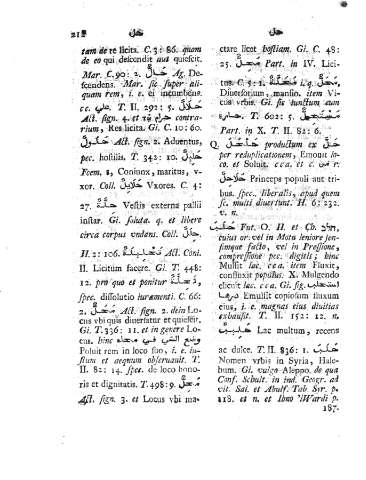 212 حل حل
tam de re licita. C. 3: 86. quam
de eo qui descendit aut quiescit.
Mar. C. 90: 2. حَالٌّ Ag. De-
scendens. Mar. sic super ali-
quam rem, i. e. ei incumbens
cc. علي. T. II. 292: 5. حَلَالٌ
Act. sign. 4. et حرام contra-
rium, Res licita. Gl. C. 10: 60.
حُلُولٌ Act. sign. 2. Adventus,
pec. hostilis. T. 342: 10. حَلِيلٌ
Foem. s, Coniunx, maritus, v.
vxor. Coll. حَلَائِلُ Vxores. C. 4:
27. Vestis externa pallii
instar. Gl. soluta. q. et libere
circa corpus vndans. Coll. حُلَلٌ
H. 2: 106. تَحْلِيلٌ Act. Coni.
II. Licitum facere. Gl. T. 448:
12. pro quo et ponitur تَحِلَّةٌ
spec. dissolutio iuramenti. C. 66:
2. مَحَلٌّ Act. sign. 2. dein Lo-
cus vbi quis diuersatur et quiescit,
Gl. T. 336: 11. et in genere Lo-
cus. hinc وضع الشي في محله
Posuit rem in loco suo, i. e. iu-
stum et aequum obseruauit. T.
II. 82: 14. spec. de loco hono-
ris et dignitatis. T. 498: 9. مَحِلٌّ
Act. sign. 3. et Locus vbi ma-
ctare licet hostiam. Gl. C. 48:
25. مُحِلٌّ Part. in IV. Lici-
tus. C. 5: 1. مَحَلَّةٌ i. q.
Diuersorium, mansio. item Vi-
cus vrbis. Gl. sic tunctum eum
T. 602: 5. مُسْتَحِلٌّ
Part. in X. T. II. 82: 6.
Q. حَلْحَلَ productum ex حل
per reduplicationem, Emouit in-
et. Soluit, cc. a. et c. من r.
حُلَاحِلٌ Princeps populi aut tri-
bus. spec. liberalis, apud quem
sc. multi diuertunt. H. 6: 232.
v. n.
حَلَبَ Fut. O. H. et Cb. חלב,
cuius or. vel in Motu leniore ien-
simque facto, vel in Pressione,
compressione pec. digitis; hinc
Mulsit lac. cc. a. item Fluxit,
confluxit populus. X. Mulgendo
elicuit lac. cc. a. Gl. sig. استحلب
درها Emulsit copiosum fluxum
eius, i. e. magnas eius diuitias
exhausit. T. II. 152: 12. n.
حَلِيبٌ Lac multum, recens
ac dulce. T. II. 836: 1. حَلَبُ
Nomen vrbis in Syria, Hale-
bum. Gl. vulgo Aleppo. de qua
Conf. Schult. in ind. Geogr. ad
vit. Sal. et Abulf. Tab. Syr. p.
118. et n. et Ibno 'lWardi p.
187.